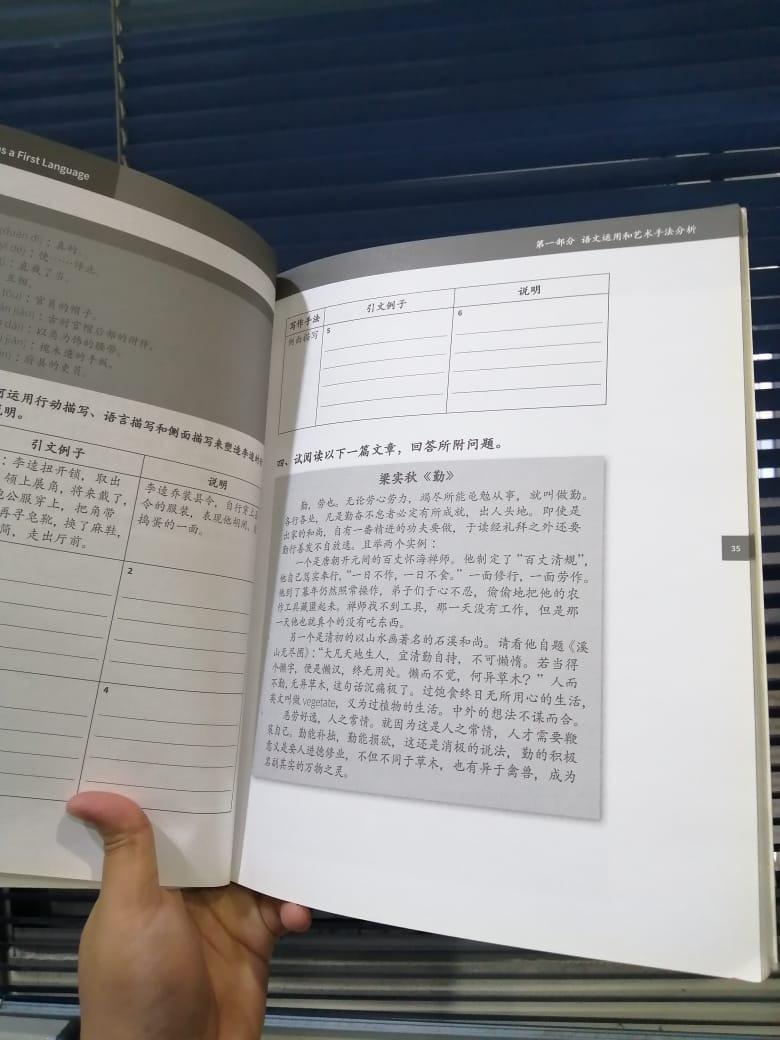 s a First Language
：真的。
：使……停止。
：直截了当。
互相。
：官员的帽子。
：古时官帽后部的附件。
：以兽为饰的腰带。
：槐木造的手板。
：府县的吏员。
可运用行动描写、语言描写和侧面描写来塑造李逵的
说明。
引文例子
说明
：李逵扭开锁，取出
领上展角，将来戴了，
公服穿上，把角带
再寻皂靴，换了麻鞋，
简，走出厅前。
李逵乔装县令，自行穿上
令的服装，表现他胡闹、
捣蛋的一面。
2
4
第一部分 语文运用和艺术手法分析
写作手法
引文例子
说明
侧面描写
5
6
四、试阅读以下一篇文章，回答所附问题。
梁实秋《勤》
勤，劳也。无论劳心劳力，竭尽所能黾勉从事，就叫做勤。
各行各业，凡是勤奋不怠者必定有所成就，出人头地。即使是
出家的和尚，自有一番精进的功夫要做，于读经礼拜之外还要
勤行善发不自放逸。且举两个实例：
一个是唐朝开元间的百丈怀海禅师。他制定了“百丈清规”，
他自己笃实奉行，“一日不作，一日不食。”一面修行，一面劳作。
他到了暮年仍然照常操作，弟子们于心不忍，偷偷地把他的农
作工具藏匿起来。禅师找不到工具，那一天没有工作，但是那
一天他也就真个的没有吃东西。
另一个是清初的以山水画著名的石溪和尚。请看他自题《溪
山无尽图》：“大凡天地生人，宜清勤自持，不可懒惰。若当得
个懒字，便是懒汉，终无用处。懒而不觉，何异草木？”人而
不勤，无异草木，这句话沉痛极了。过饱食终日无所用心的生活，
英文叫做vegetate，义为过植物的生活。中外的想法不谋而合。
恶劳好逸，人之常情。就因为这是人之常情，人才需要鞭
策自己。勤能补拙，勤能损欲，这还是消极的说法，勤的积极
意义是要人进德修业，不但不同于草木，也有异于禽兽，成为
名副其实的万物之灵。
35